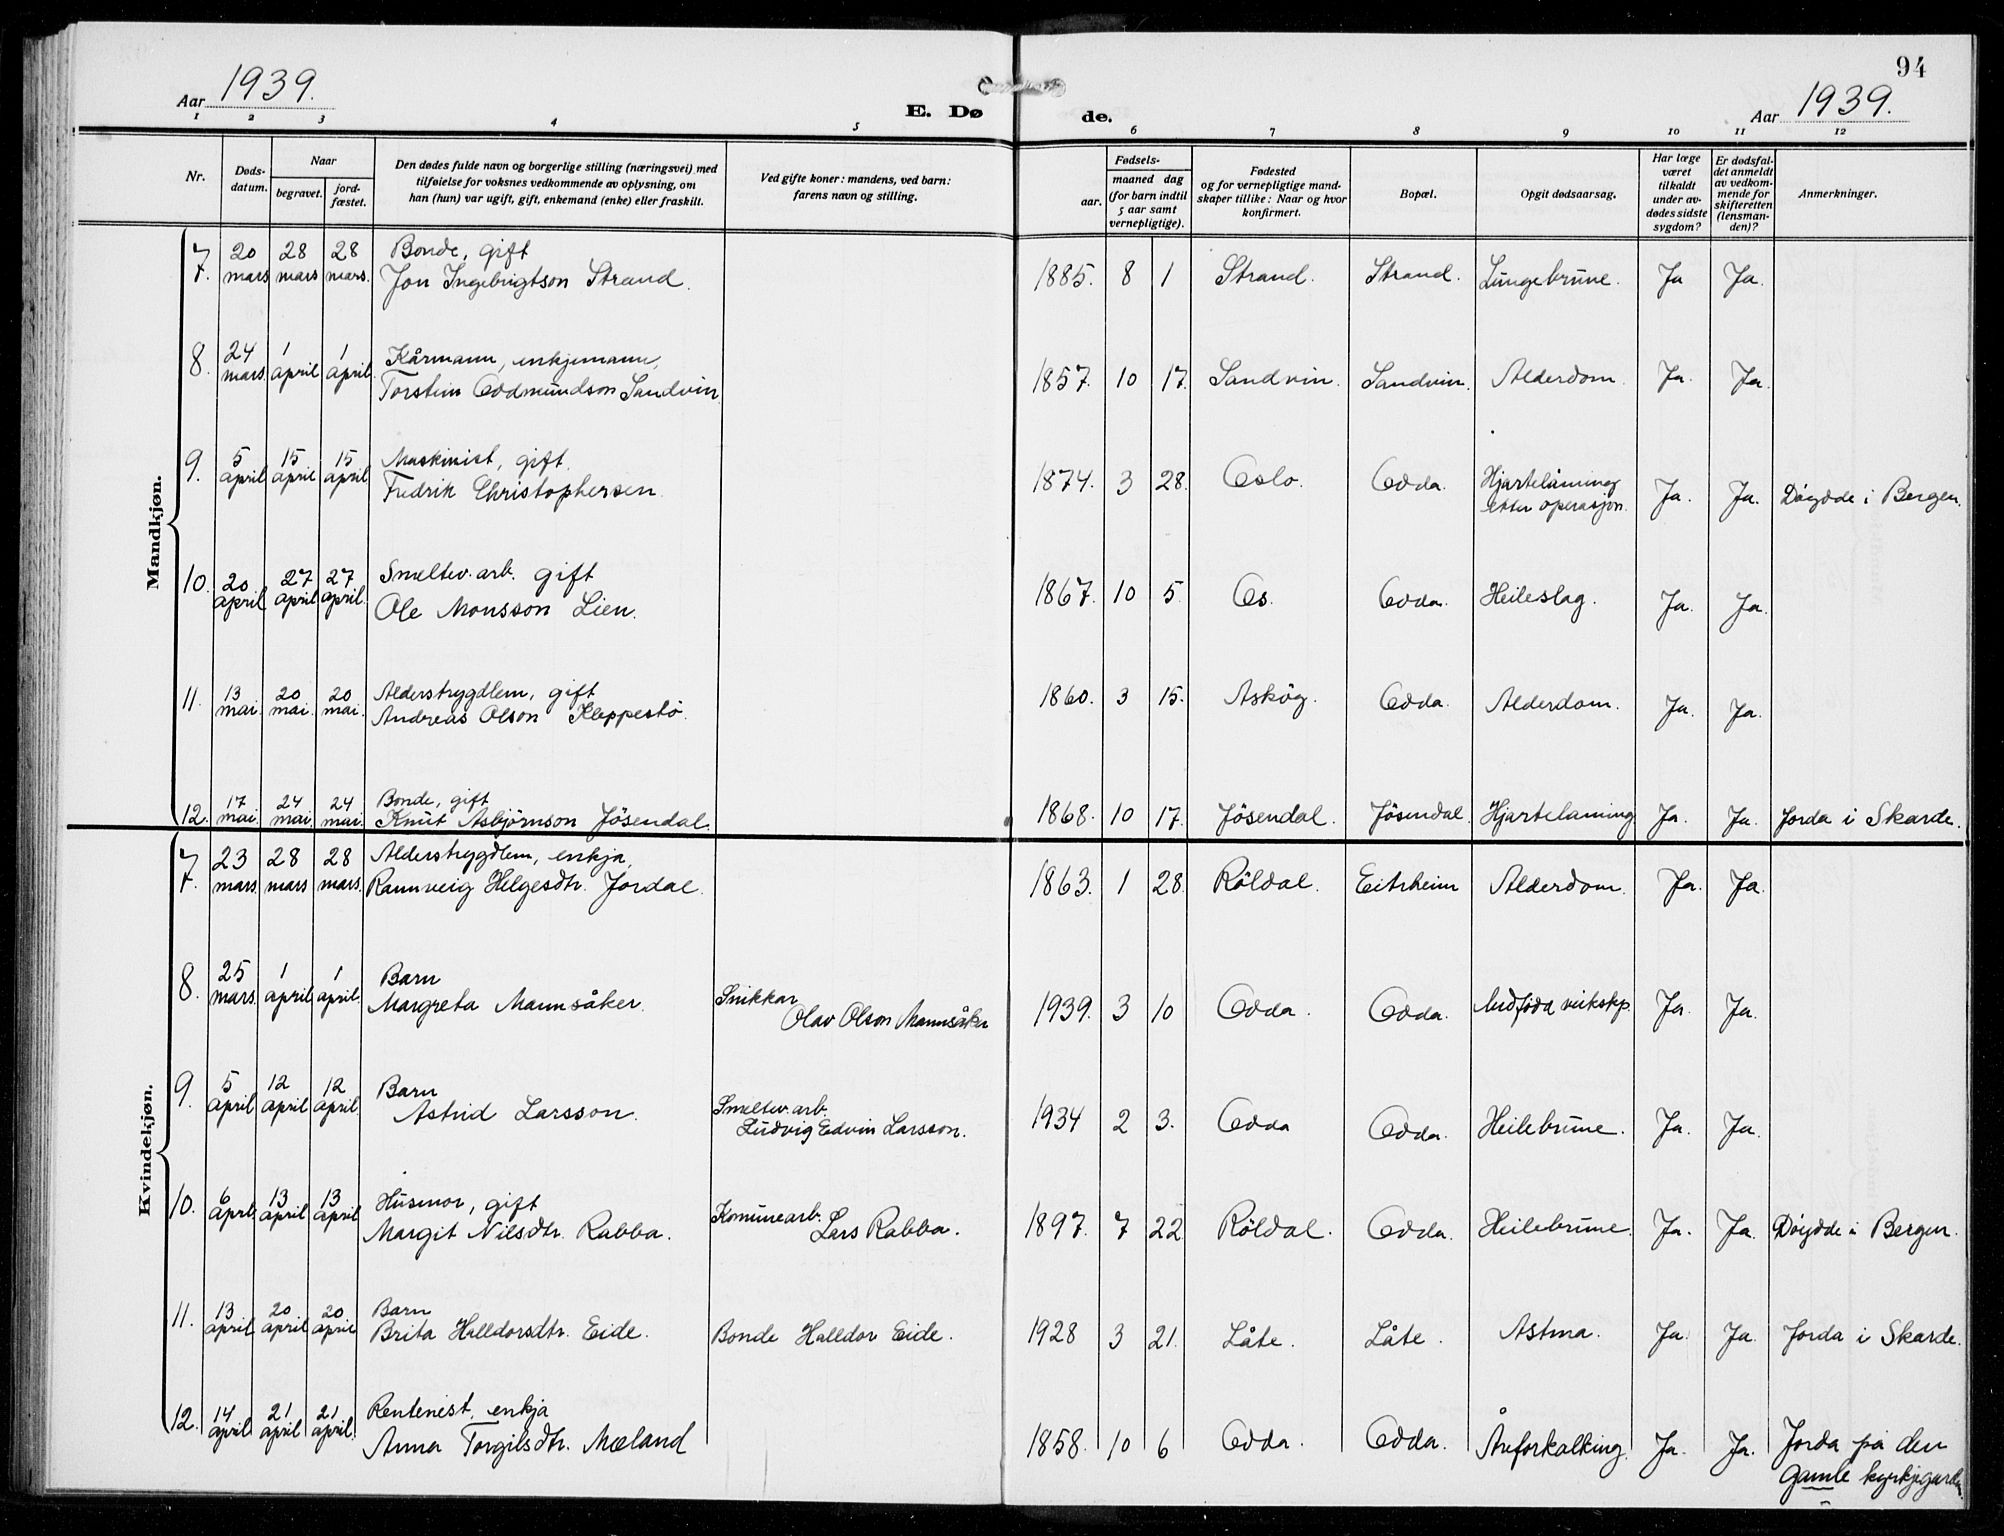 94
Aar 1939. E. Dø de. Aar 1939.
1 2 3 4 5 6 7 8 9 10 11 12
Nr.
Døds-
datum.
Naar
begravet.
jord-
fæstet.
Den dødes fulde navn og borgerlige stilling (næringsvei) med
tilføielse for voksnes vedkommende av oplysning, om
han (hun) var ugift, gift, enkemand (enke) eller fraskilt.
Ved gifte koner: mandens, ved barn:
farens navn og stilling.
Fødsels-
aar.
maaned dag
(for barn indtil
5 aar samt
vernepligtige).
Fødested
og for vernepligtige mand-
skaper tillike: Naar og hvor
konfirmert.
Bopæl.
Opgit dødsaarsag.
Har læge
været
tilkaldt
under av-
dødes sidste
sygdom?
Er dødsfal-
det anmeldt
av vedkom-
mende for
skifteretten
(lensman-
den)?
Anmerkninger.
Mandkjøn.
7. 20 mars 28 mars 28 mars. Bonde, gift
Jon Ingebrigtson Strand. 1885. 8 1 Strand. Strand. Lungebrune. Ja Ja.
8. 24 mars. 1 april 1 april. Kårmann, enkjemann,
Torstein Oddmundson Sandvin 1857. 10 17. Sandvin. Sandvin. Alderdom. Ja. Ja.
9. 5 april 15 april 15 april Maskinist, gift.
Fredrik Christophersen. 1874. 3 28. Oslo. Odda. Hjartelaming
etter operasjon. Ja. Ja. Døydde i Bergen.
10. 20 april 27 april 27 april. Smeltev. arb. gift
Ole Monsson Lien. 1867. 10 5. Os. Odda. Heileslag. Ja. Ja.
11. 13 mai. 20 mai. 20 mai. Alderstrygdlem, gift
Andreas Olson Kleppestø. 1860. 3 15. Askøy. Odda. Alderdom. Ja. Ja.
12. 17 mai. 24 mai. 24 mai. Bonde, gift
Knut Asbjørnson Jøsendal. 1868. 10 17. Jøsendal. Jøsendal. Hjartelaming Ja. Ja. Jorda i Skarde.
Kvindekjøn.
7. 23 mars. 28 mars 28 mars. Alderstrygdlem, enkja,
Rannveig Helgesdtr. Jordal. 1863. 1 28. Røldal. Eitrheim Alderdom. Ja. Ja.
8. 25 mars. 1 april 1 april. Barn
Margreta Mannsåker. Snikkar
Olav Olson Mannsåker 1939. 3 10 Odda. Odda. Medfødd veikskp. Ja. Ja.
9. 5 april 12 april 12 april. Barn
Astrid Larsson. Smeltev. arb.
Ludvig Edvin Larsson. 1934 2 3. Odda Odda. Heilebrune. Ja. Ja.
10. 6 april 13 april 13 april Husmor, gift
Margit Nilsdtr. Rabba. Komunearb.
Lars Rabba. 1897. 7 22 Røldal. Odda. Heilebrune. Ja. Ja. Døydde i Bergen.
11. 13 april. 20 april 20 april Barn
Brita Halldorsdtr. Eide. Bonde Halldor Eide. 1928 3 21. Låte. Låte. Astma. Ja. Ja. Jorda i Skarde.
12. 14 april 21 april 21 april. Rentenist, enkja
Anna Torgilsdtr. Mæland 1858. 10 6 Odda. Odda. Åreforkalking. Ja. Ja. Jorda på den
gamle kyrkjegarden.